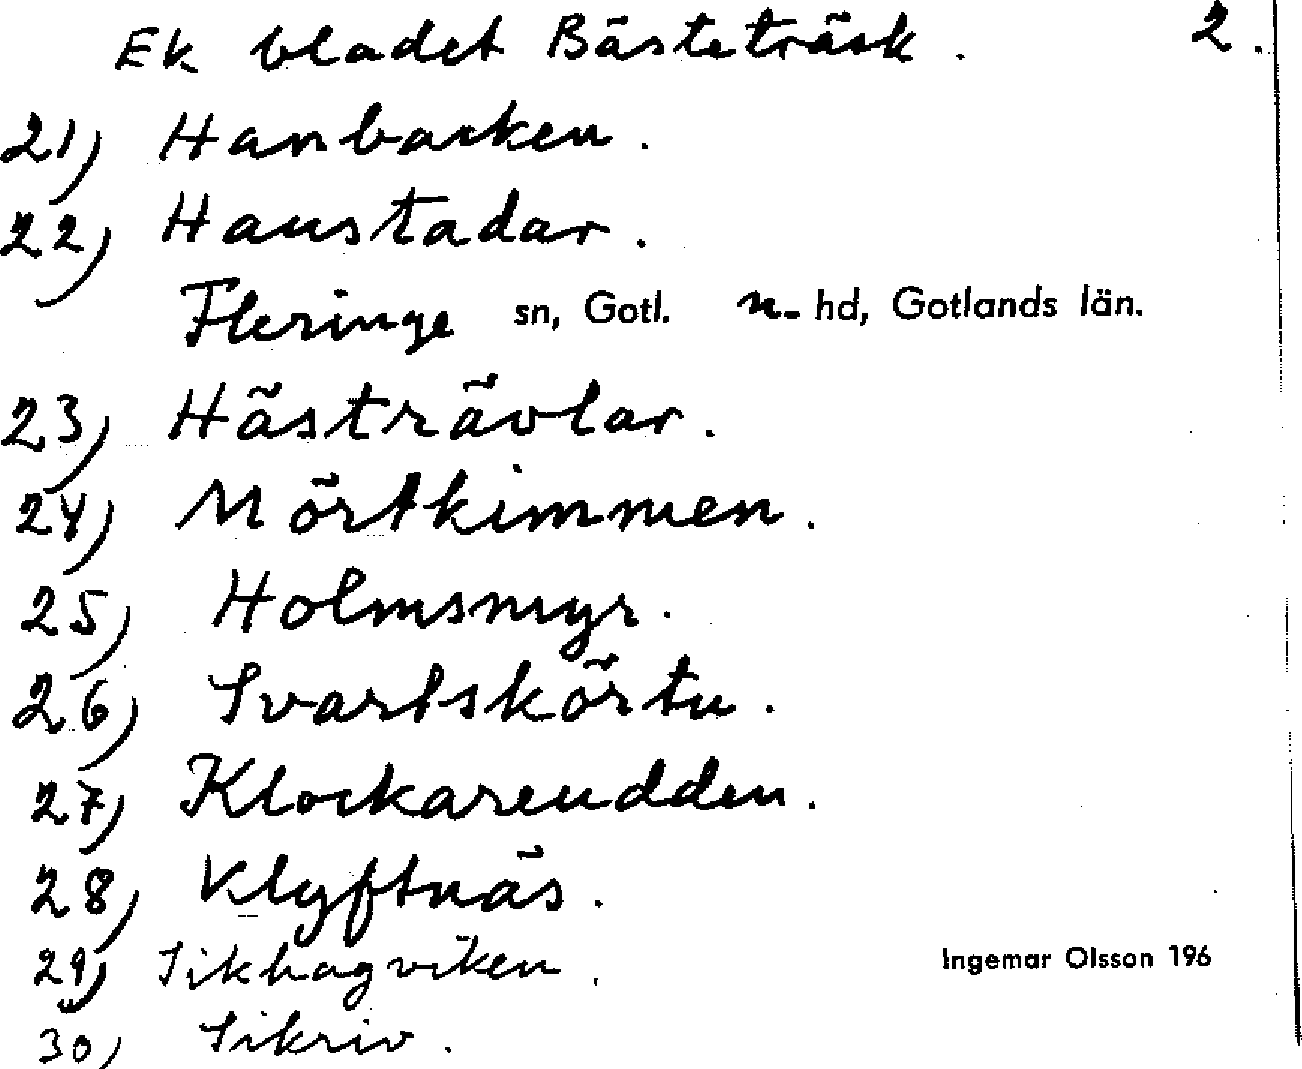 Ek bladet Bästeträsk. 2.
21) Hanbacken.
22) Haustadar.
Fleringe sn, Gotl. n. hd, Gotlands län.
23) Hästrävlar.
24) Mörtkimmen.
25) Holmsmyr.
26) Svartskörtu.
27) Klockareudden.
28) Klyftnäs.
29) Sikhagviken.
Ingemar Olsson 196
30) Sikriv.